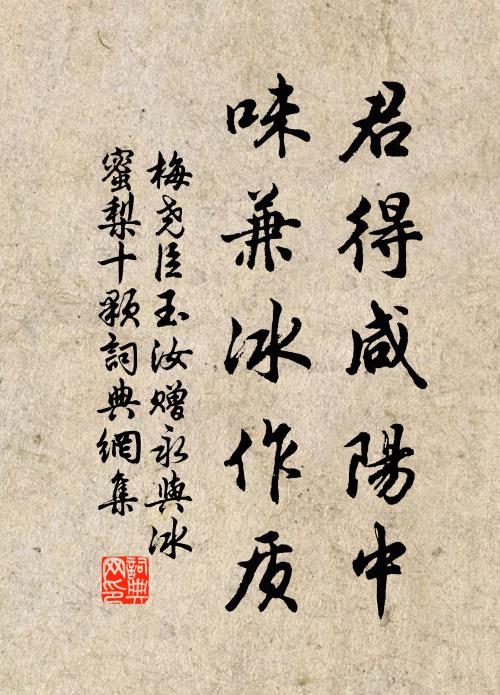 君得咸陽中
味兼冰作质
梅尧臣玉汝赠永與冰
蜜梨十颗詞典網集
詞典网印